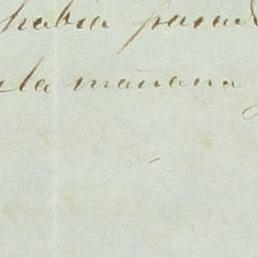 habia pasad
la mañana